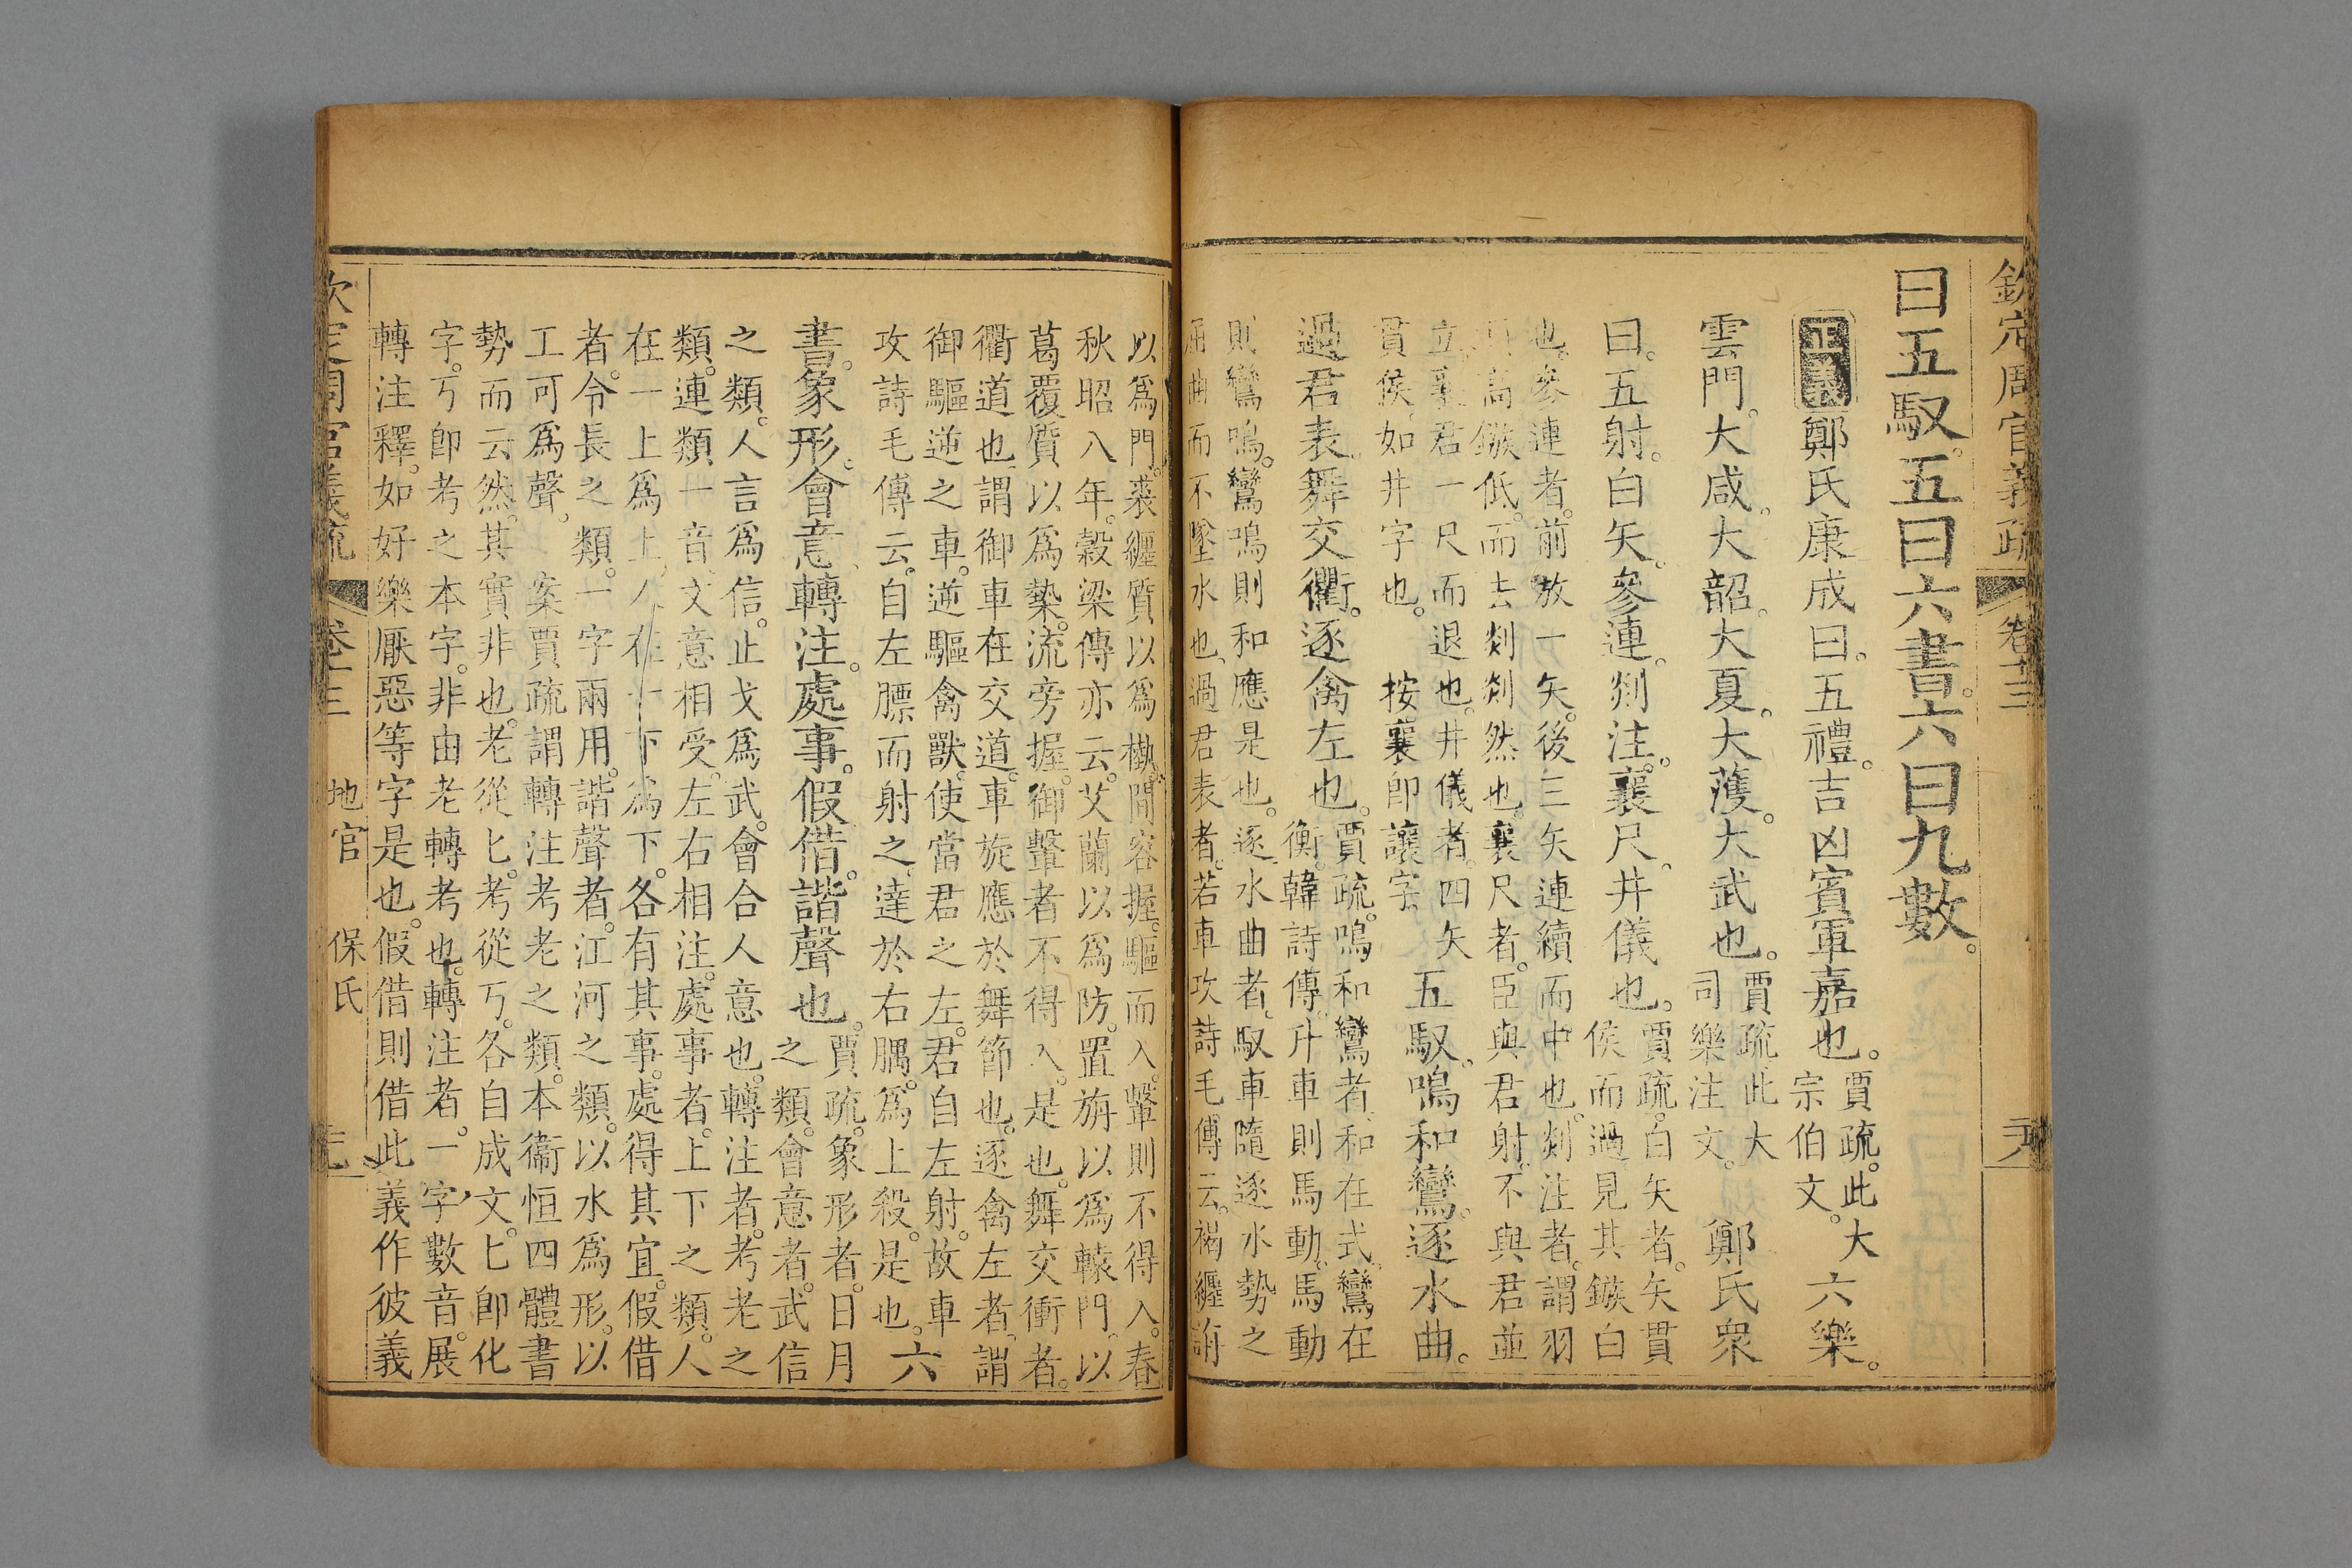 欽定周官義疏 卷十三
曰五馭。五曰六書。六曰九數。
正義 鄭氏康成曰。五禮。吉凶賓軍嘉也。賈疏。此大
宗伯文。六樂。
雲門。大咸。大韶。大夏。大濩。大武也。賈疏。此大
司樂注文。鄭氏衆
曰。五射。白矢。參連。剡注。襄尺。井儀也。賈疏。白矢者。矢貫
侯而過見其鏃白
也。參連者。前放一矢。後三矢連續而中也。剡注者。謂羽
頭高鏃低而去剡剡然也。襄尺者。臣與君射。不與君並
立。襄君一尺而退也。井儀者。四矢
貫侯。如井字也。 按襄即讓字
五馭。鳴和鸞。逐水曲。
過君表。舞交衢。逐禽左也。賈疏。鳴和鸞者。和在式。鸞在
衡。韓詩傳。升車則馬動。馬動
則鸞鳴。鸞鳴則和應是也。逐水曲者。馭車隨逐水勢之
屈曲而不墜水也。過君表者。若車攻詩毛傳云。褐纏旃
以爲門。裘纏質以爲槸。間容握。驅而入。轚則不得入。春
秋昭八年。穀梁傳亦云。艾蘭以爲防。置旃以爲轅門。以
葛覆質以爲槷。流旁握。御轚者不得入。是也。舞交衢者。
衢道也。謂御車在交道。車旋應於舞節也。逐禽左者。謂
御驅逆之車。逆驅禽獸。使當君之左。君自左射。故車
攻詩毛傳云。自左膘而射之。達於右腢。爲上殺。是也。六
書。象形。會意。轉注。處事。假借。諧聲也。賈疏。象形者。日月
之類。會意者。武信
之類。人言爲信。止戈爲武。會合人意也。轉注者。考老之
類。連類一音。文意相受。左右相注。處事者。上下之類。人
在一上爲上。人在一下爲下。各有其事。處得其宜。假借
者。令長之類。一字兩用。諧聲者。江河之類。以水爲形。以
工可爲聲。 案賈疏謂轉注考老之類。本衞恒四體書
勢而云然。其實非也。老從匕。考從丂。各自成文。匕卽化
字。丂卽考之本字。非由老轉考也。轉注者。一字數音。展
轉注釋。如好樂厭惡等字是也。假借則借此義作彼義
欽定周官義疏 卷十三 地官 保氏